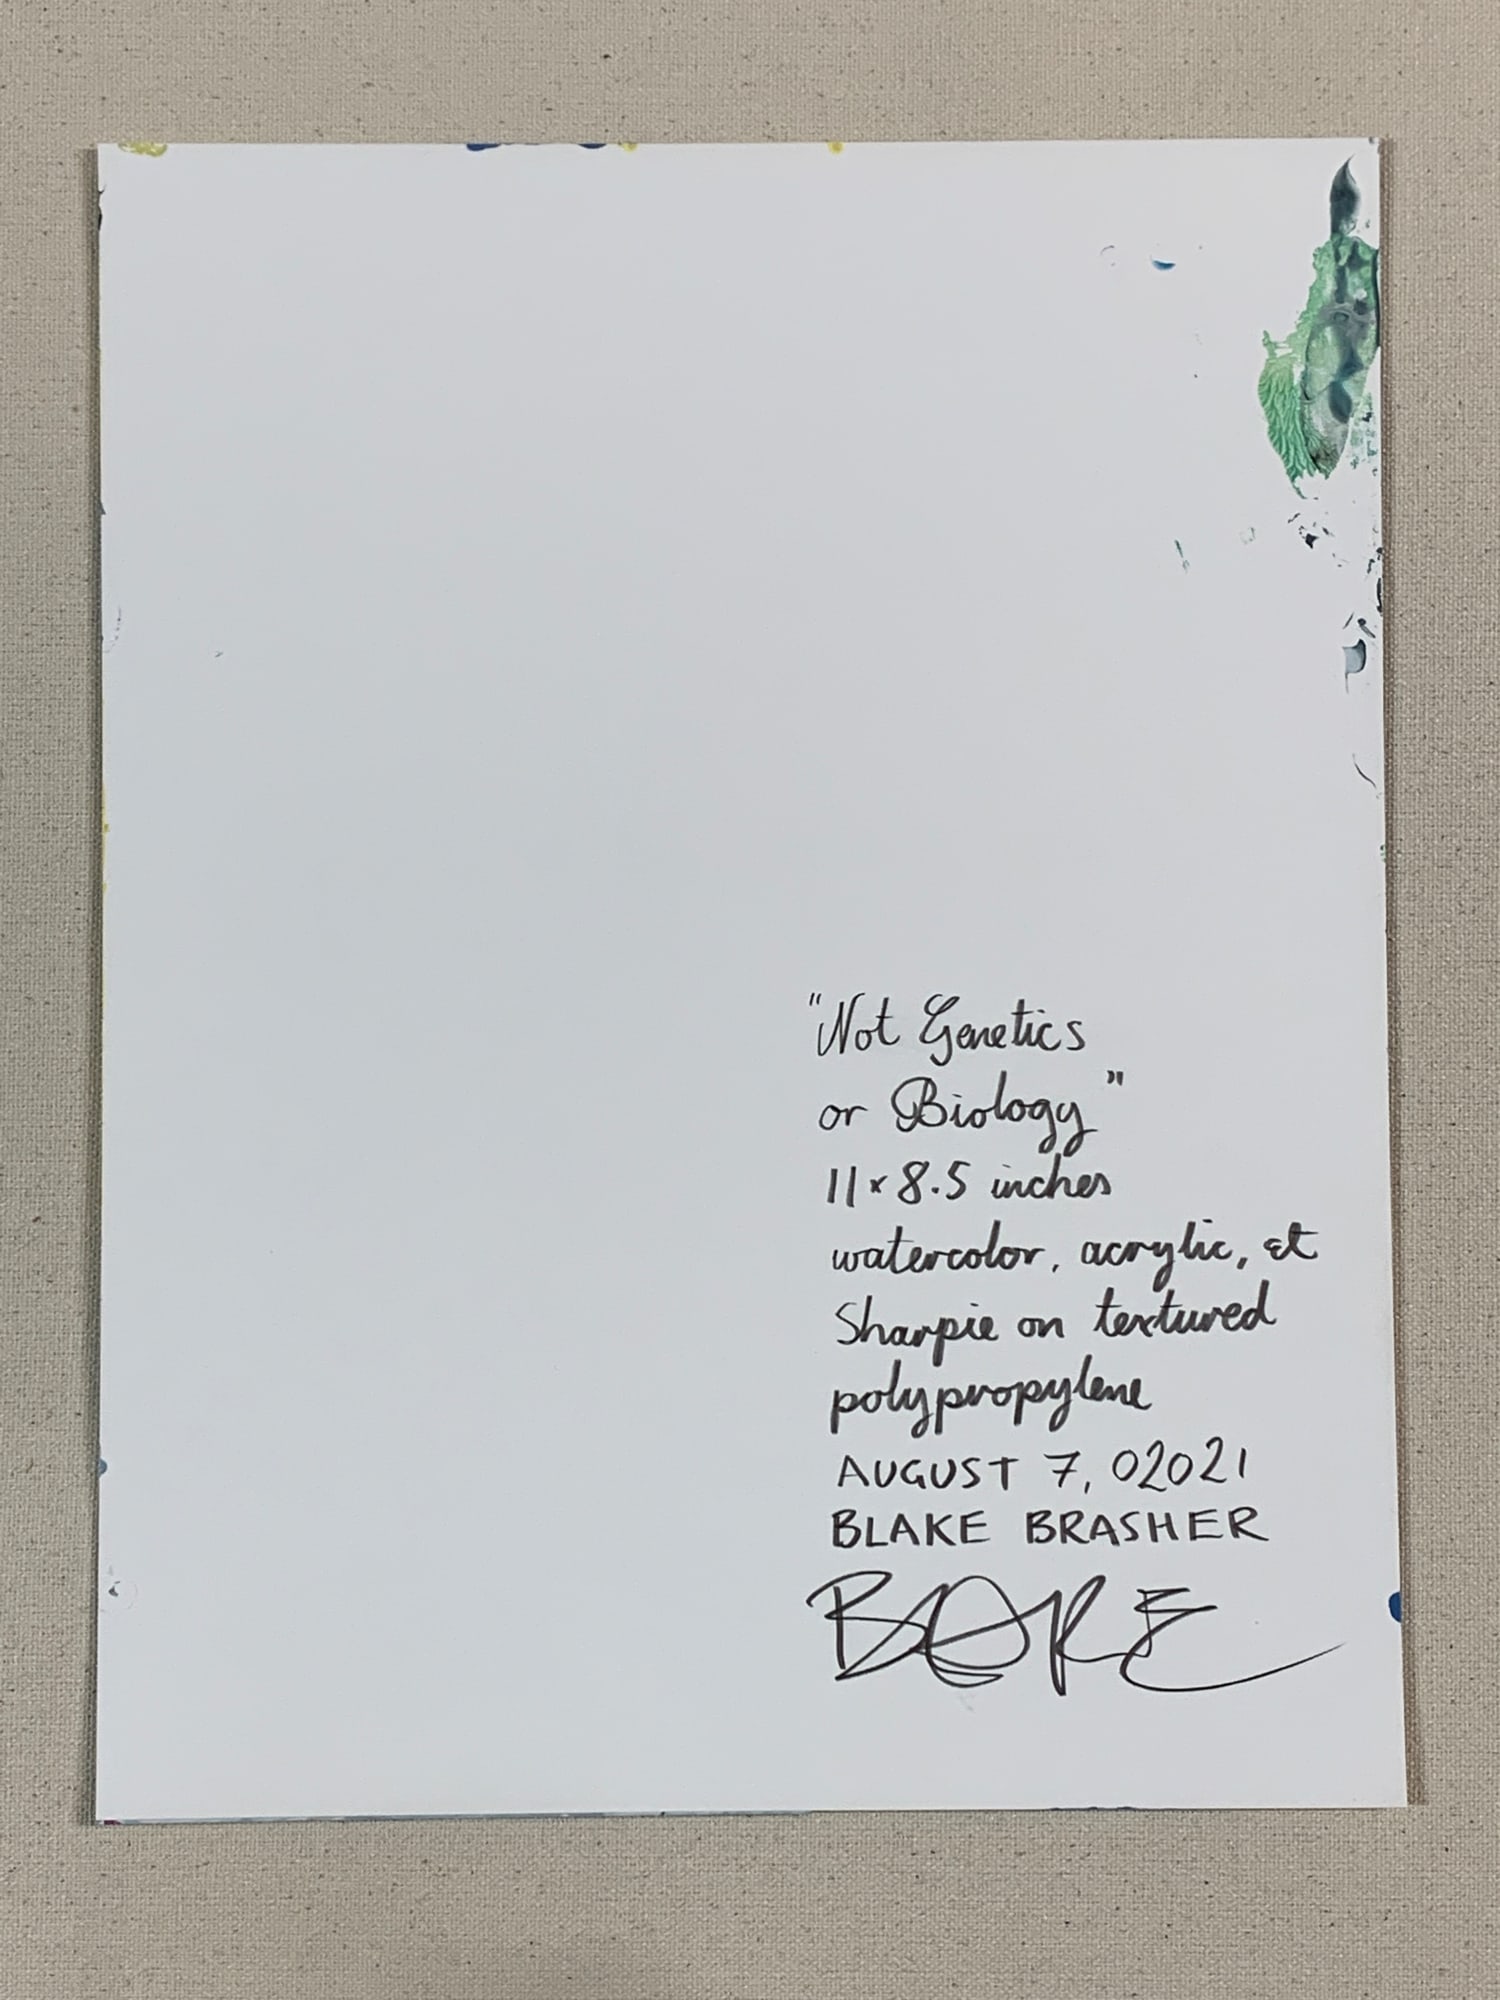 "Not Genetics
or Biology"
11 x 8.5 inches
watercolor, acrylic, et
Sharpie on textured
polypropylene
AUGUST 7, 02021
BLAKE BRASHER